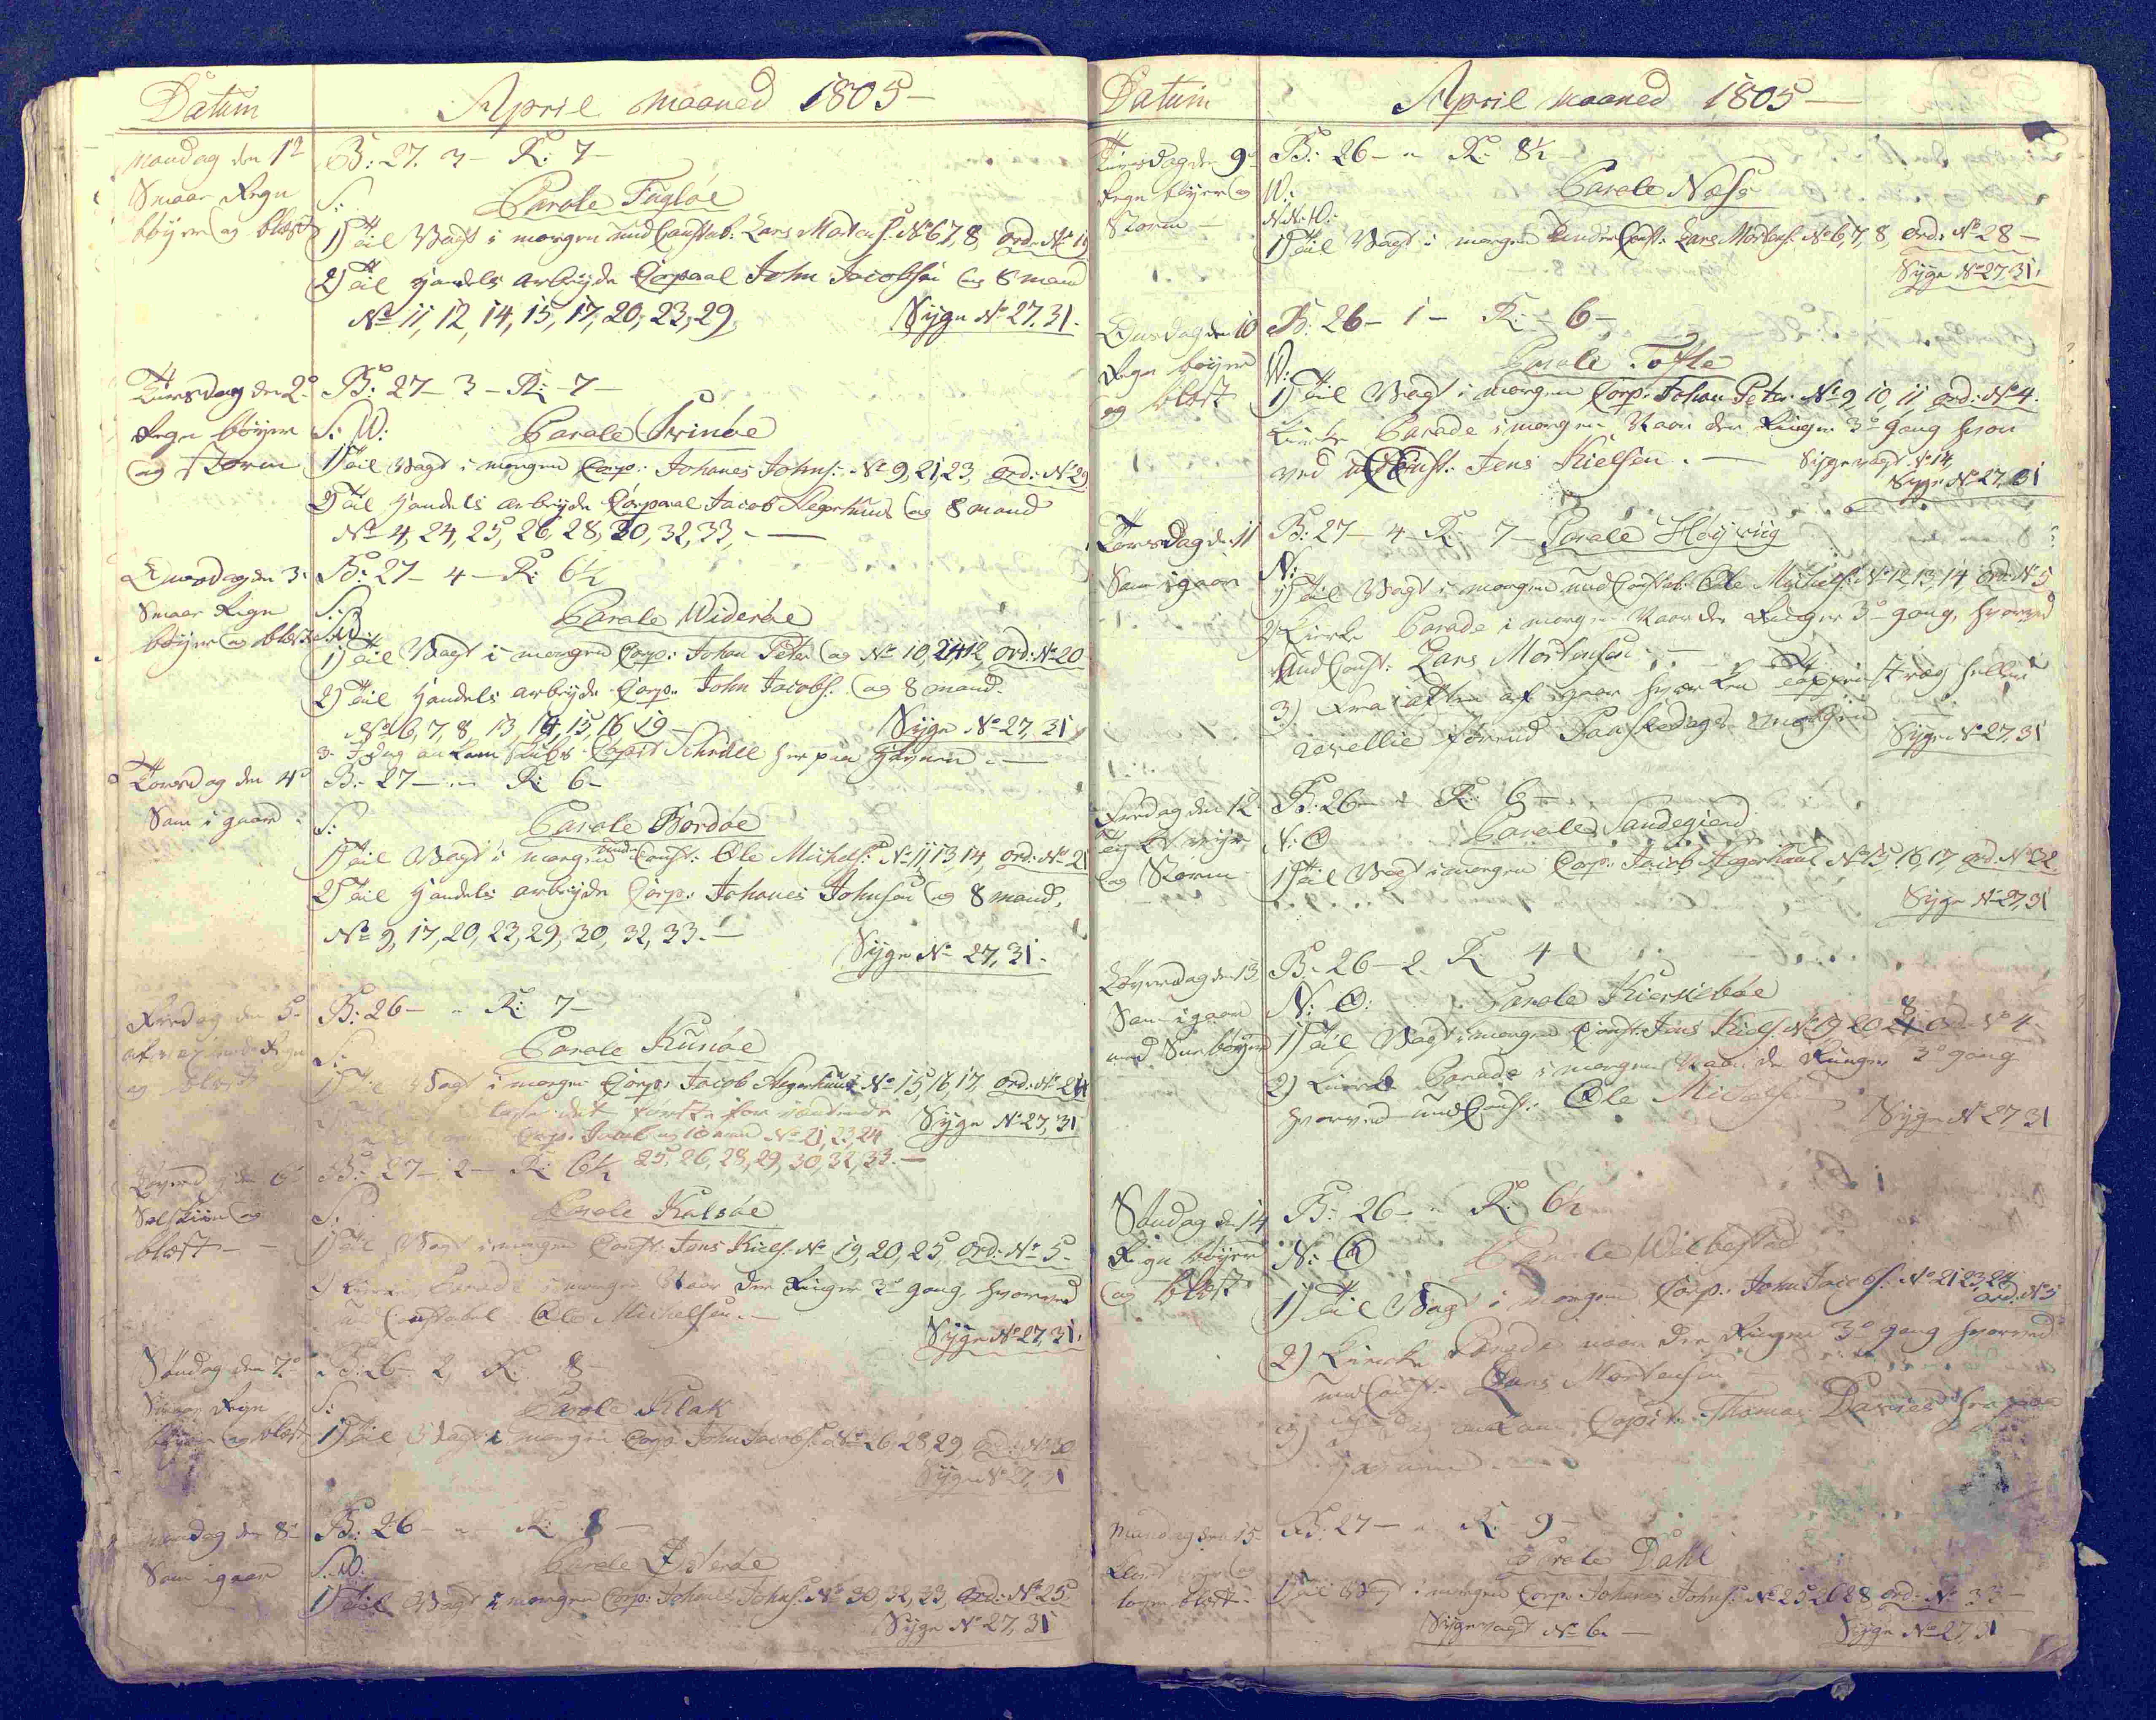 Datum
April maaned 1805 –
Mandag den 1te
Smaae Regn
böyer og blæst
B: 27. 3 – R: 7 –
S:
Parole Fugløe
1) Til Vagt i morgen und Constab: Lars Mortens: No 6, 7, 8, ord: No 19
2) Til Handels arbeyde Corpaal John Jacobsen og 8 mand
No 11, 12, 14, 15, 17, 20, 23, 29,
Syge No 27, 31 –
Tiirsdag den 2den
Regn böyer
og storm
B: 27 – 3 – R: 7 –
S: W:
Parole Svinöe
1) Til Vagt i morgen Corp: Johanes Johns: No 9, 21, 23, ord: No 29
2) Til Handels arbeyde Corporaal Jacob Aegerhuus og 8 mand
No 4, 24, 25, 26, 28, 30, 32, 33, –
Onsdag den 3
Smaae Regn
böyer og blæst
B: 27 – 4 – R: 6½
S:
S:W:
Parole Wideröe
1) Til Vagt i morgen Corp: Johan Peter og No 10, 12, ord: No 20
2) Til Handels arbeyde Corp: John Jacobs: og 8 mand –
No 6, 7, 8, 13, 14, 15, 16, 19 –
Syge No 27, 31
3 – I dag ankom Skibs Capit Schröll her paa Havnen –
Torsdag den 4de
Som i gaar
B: 27 – " – R: 6 –
S:
Parole Bordöe
1) Til Vagt i morgen und Const: Ole Michels: No 11, 13, 14, ord: No 21
2) Til Handels arbeyde Corp: Johanes Johnsen og 8 mand,
No 9, 17, 20, 23, 29, 30, 32, 33. –
Syge No 27, 31 –
Fredag den 5
og blæst
B: 26 – " R: 7 –
S:
Parole Kunöe
1) Til Vagt i morgen Corp: Jacob Aegerhuus No 15, 16, 17, ord: No 24
Syge No 27, 31
Corp: Jacob og 10 mand No 21, 23, 24
25, 26, 28, 29, 30, 32, 33. –
Löverdag den 6
Solskin og
blæst –
B: 27 – 2 – R: 6½
S:
Parole Kalsöe
1) Til Vagt i morgen Const: Jens Kiels: No 19, 20, 25, ord: No 5 –
2) Kierke Parade i morgen Naar der Ringer 3de gang, hvorved
und Constabel Ole Michelsen. –
Syge No 27, 31,
Söndag den 7de
Smaae Regn
böyer og blæst
B: 26 – 2 R: 8
S:
Parole Klak
1) Til Vagt i morgen Corp: John Jacobs: No 26, 28, 29, ord: No 30
Syge No 27, 31
Mandag den 8de
Som i gaar
B: 26 – " R: 8 –
S:W:
Parole Österöe
1) Til Vagt i morgen Corp: Johanes Johns: No 30, 32, 33, ord: No 25
Syge No 27, 31
Datum
April maaned 1805 –
Tiirsdag den 9de
Regn böyer og
Storm –
B: 26 – " R: 8½
W:
N:N:W:
Parole Næss
1) Til Vagt i morgen Under Const: Lars Mortens: No 6, 7, 8, ord: No 28 –
Syge No 27, 31,
Onsdag den 10
Regn böyer
og blæst
B: 26 – 1 – R: 6 –
W:
Parole Tofte
1) Til Vagt i morgen Corp: Johan Peter No 9, 10, 11 ord: No 4.
Kierke Parade i morgen Naar der Ringer 3de gang hvor
ved und Const: Jens Kielsen. –
Sygevagt No 14,
Syge No 27, 31
Torsdag d: 11
Som i gaar
B: 27 – 4 – R: 7 – Parole Höyviig
N:
1) Til Vagt i morgen und Constab: Ole Michels: No 12, 13, 14, ord: No 5
2) Kierke Parade i morgen Naar der Ringer 3de gang, hvorved
Und Const: Lars Mortensen. –
3) Fra i aften af gaar hverken Tappenstræg heller
revellie förend Paaskedags Morgen
Syge No 27, 31
Fredag den 12
og Storm
B: 26 – " R: 6 –
N: O
Parole Sandegierd
1) Til Vagt i morgen Corp: Jacob Aegerhuus No 15, 16, 17, ord: No 32.
Syge No 27, 31
Löverdag den 13
Som i gaar
med Snee böyer
B: 26 – 2. R: 4 –
N: O:
Parole Kierkiböe
1) Til Vagt i morgen Const: Jens Kiels: No 19, 20, 8 ord: No 4
2) Kierke Parade i morgen Naar der Ringer 3de gang
hvorved und Const: Ole Michelsen
Syge No 27 31
Söndag den 14
Regn böyer
og blæst
B: 26 – " R: 6½
N: O
Parole Welbestad
1) Til Vagt i morgen Corp: John Jacobs: No 21, 23, 24
ord: No 5
2) Kierke Parade naar der Ringer 3de gang hvorved
und Const: Lars Mortensen
3) I dag ankom Capit: Thomas Davies her paa
Havnen –
Mandag den 15
B: 27 – " R: 9 –
Parole Dahl
1) Til Vagt i morgen Corp: Johanes Johns: No 25 26 28 ord: No 33 –
Sygevagt No 6. –
Syge No 27, 31